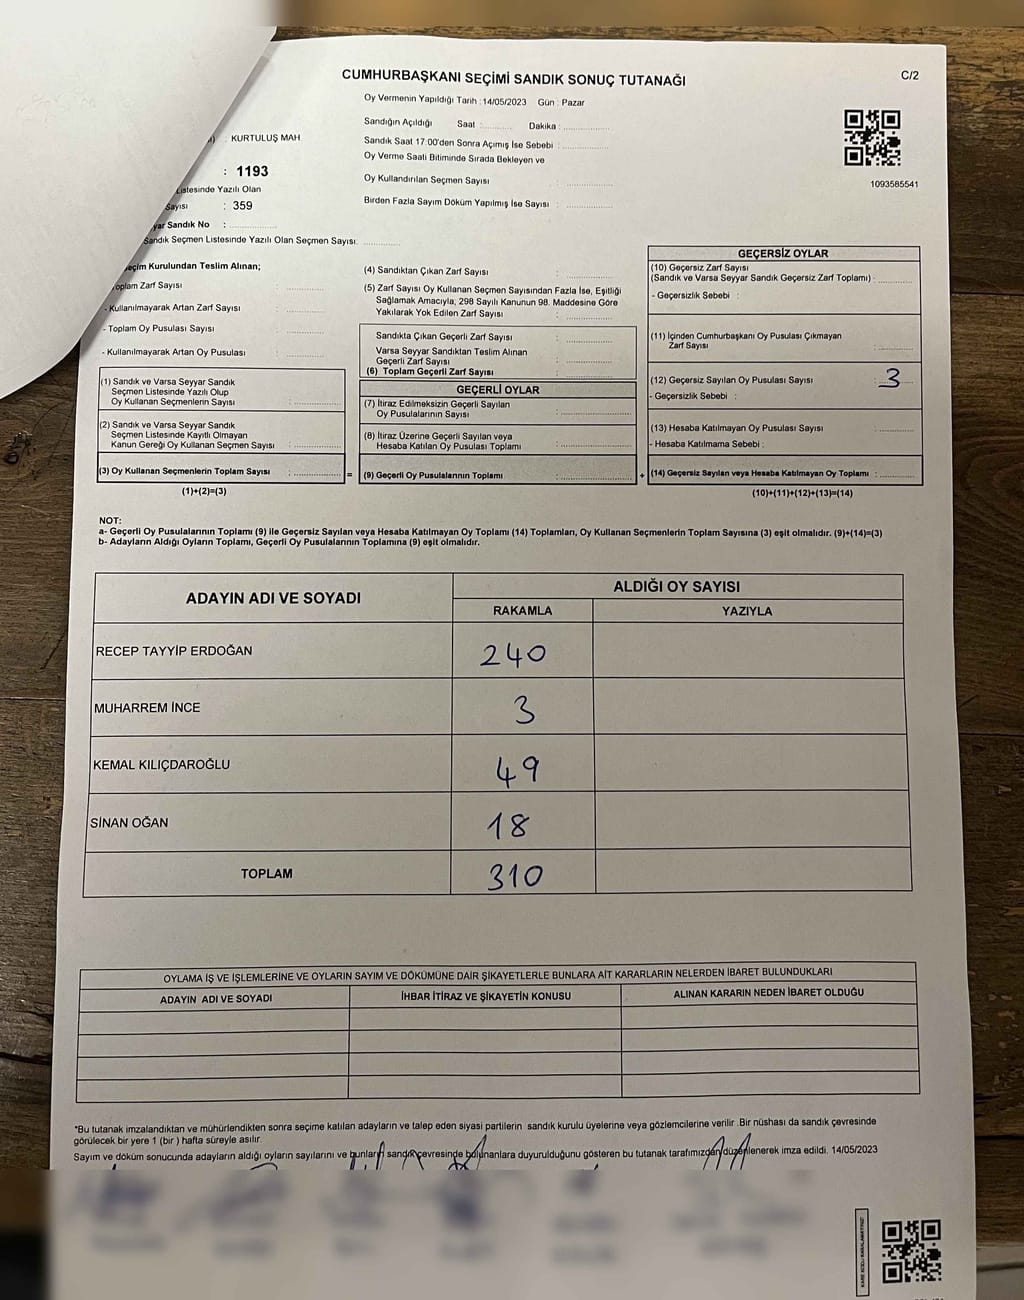 CUMHURBAŞKANI SEÇİMİ SANDIK SONUÇ TUTANAĞI
C/2
Oy Vermenin Yapıldığı Tarih : 14/05/2023 Gün : Pazar
Sandığın Açıldığı Saat : Dakika :
Sandık Saat 17:00'den Sonra Açımış İse Sebebi :
Oy Verme Saati Bitiminde Sırada Bekleyen ve
Oy Kullandırılan Seçmen Sayısı :
Birden Fazla Sayım Döküm Yapılmış İse Sayısı :
1093585541
: KURTULUŞ MAH
: 1193
Listesinde Yazılı Olan
Sayısı : 359
Sandık No :
Sandık Seçmen Listesinde Yazılı Olan Seçmen Sayısı:
Kurulundan Teslim Alınan;
Zarf Sayısı :
- Kullanılmayarak Artan Zarf Sayısı :
- Toplam Oy Pusulası Sayısı :
- Kullanılmayarak Artan Oy Pusulası :
(1) Sandık ve Varsa Seyyar Sandık
Seçmen Listesinde Yazılı Olup
Oy Kullanan Seçmenlerin Sayısı :
(2) Sandık ve Varsa Seyyar Sandık
Seçmen Listesinde Kayıtlı Olmayan
Kanun Gereği Oy Kullanan Seçmen Sayısı :
(3) Oy Kullanan Seçmenlerin Toplam Sayısı : =
(1)+(2)=(3)
(4) Sandıktan Çıkan Zarf Sayısı :
(5) Zarf Sayısı Oy Kullanan Seçmen Sayısından Fazla İse, Eşitliği
Sağlamak Amacıyla; 298 Sayılı Kanunun 98. Maddesine Göre
Yakılarak Yok Edilen Zarf Sayısı :
Sandıkta Çıkan Geçerli Zarf Sayısı :
Varsa Seyyar Sandıktan Teslim Alınan
Geçerli Zarf Sayısı :
(6) Toplam Geçerli Zarf Sayısı :
GEÇERLİ OYLAR
(7) İtiraz Edilmeksizin Geçerli Sayılan
Oy Pusulalarının Sayısı :
(8) İtiraz Üzerine Geçerli Sayılan veya
Hesaba Katılan Oy Pusulası Toplamı :
(9) Geçerli Oy Pusulalarının Toplamı : +
GEÇERSİZ OYLAR
(10) Geçersiz Zarf Sayısı
(Sandık ve Varsa Seyyar Sandık Geçersiz Zarf Toplamı) :
- Geçersizlik Sebebi :
(11) İçinden Cumhurbaşkanı Oy Pusulası Çıkmayan
Zarf Sayısı :
(12) Geçersiz Sayılan Oy Pusulası Sayısı : 3
- Geçersizlik Sebebi :
(13) Hesaba Katılmayan Oy Pusulası Sayısı :
- Hesaba Katılmama Sebebi :
(14) Geçersiz Sayılan veya Hesaba Katılmayan Oy Toplamı :
(10)+(11)+(12)+(13)=(14)
NOT:
a- Geçerli Oy Pusulalarının Toplamı (9) ile Geçersiz Sayılan veya Hesaba Katılmayan Oy Toplamı (14) Toplamları, Oy Kullanan Seçmenlerin Toplam Sayısına (3) eşit olmalıdır. (9)+(14)=(3)
b- Adayların Aldığı Oyların Toplamı, Geçerli Oy Pusulalarının Toplamına (9) eşit olmalıdır.
ADAYIN ADI VE SOYADI ALDIĞI OY SAYISI
RAKAMLA YAZIYLA
RECEP TAYYİP ERDOĞAN 240
MUHARREM İNCE 3
KEMAL KILIÇDAROĞLU 49
SİNAN OĞAN 18
TOPLAM 310
OYLAMA İŞ VE İŞLEMLERİNE VE OYLARIN SAYIM VE DÖKÜMÜNE DAİR ŞİKAYETLERLE BUNLARA AİT KARARLARIN NELERDEN İBARET BULUNDUKLARI
ADAYIN ADI VE SOYADI İHBAR İTİRAZ VE ŞİKAYETİN KONUSU ALINAN KARARIN NEDEN İBARET OLDUĞU
*Bu tutanak imzalandıktan ve mühürlendikten sonra seçime katılan adayların ve talep eden siyasi partilerin sandık kurulu üyelerine veya gözlemcilerine verilir. Bir nüshası da sandık çevresinde
görülecek bir yere 1 (bir ) hafta süreyle asılır.
Sayım ve döküm sonucunda adayların aldığı oyların sayılarını ve bunların sandık çevresinde bulunanlara duyurulduğunu gösteren bu tutanak tarafımızdan düzenlenerek imza edildi. 14/05/2023